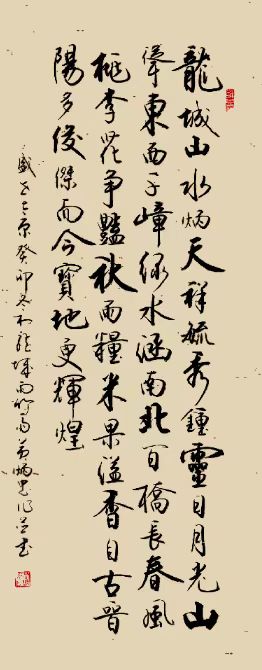 龍城山水炳天祥毓秀鍾靈日月光山
聳東西千嶂綠水涵南北百橋長春風
桃李花爭豔秋雨糧米果溢香自古晉
陽多俊傑而今寶地更輝煌
盛世太原癸卯冬於龍城雨竹齋